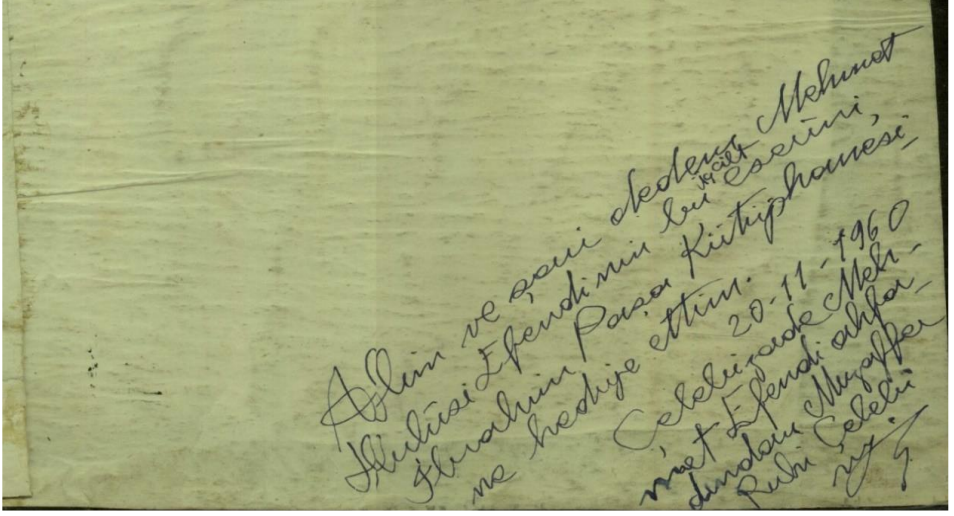 Âlim ve şair dedem Mehmet
Hulûsi Efendinin bu eserini,
1 cilt
İbrahim Paşa Kütüphanesi-
ne hediye ettim.
20-11-1960
Çelebizade Meh-
met Efendi ahfa-
dından Muzaffer
Ruhi Çelebi